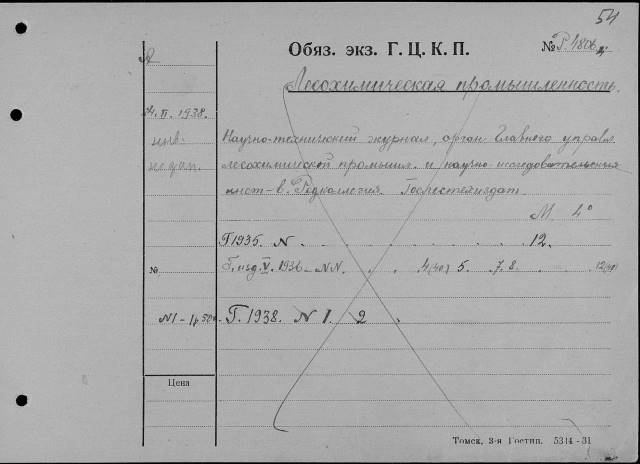 54
Обяз. экз. Г. Ц. К. П.
№ Р. 4806
Лесохимическая промышленность.
Д
24.II.1938.
инв.
Научно-технический журнал, орган Главного управл.
лесохимической промышл. и научно исследовательских
инст-в. Редколлегия. Гослестехиздат
М 4°
Г. 1935. N . . . . . . . . 12.
№
Г. изд. V. 1936 - NN. . . 4(40) 5. 7.8. . . 12(48)
N1 - 1р 50к
Г. 1938. N 1. 2 .
Цена
Томск, 3-я Гостип. 5344 - 31